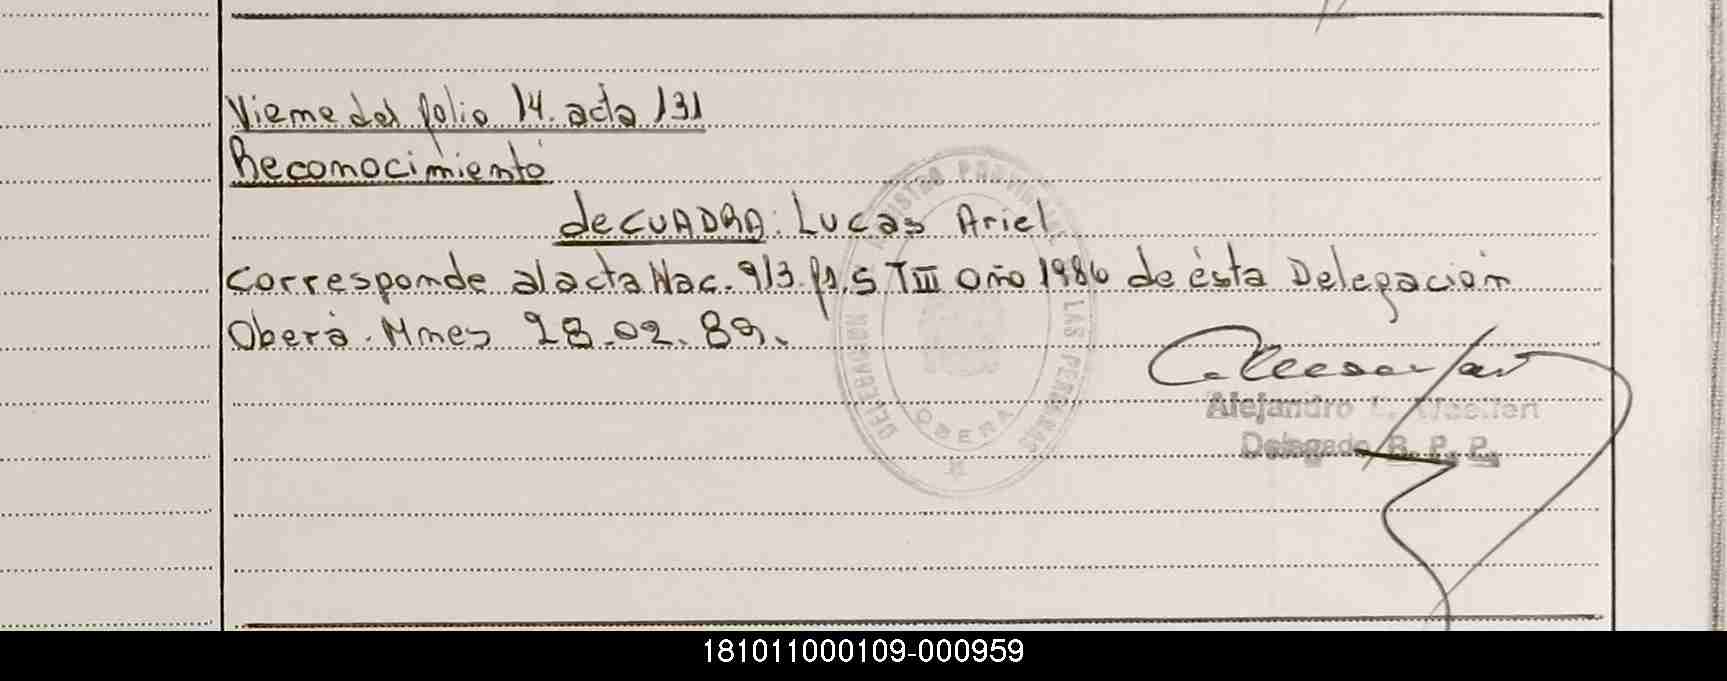 Viene del folio 14. acta 131
Reconocimiento
de CUADRA: Lucas Ariel
Corresponde al acta Nac. 913. fº. 5 TIII año 1986 de ésta Delegación
Oberá. Mnes 28.02.89.
REGISTRO PROVINCIAL DE LAS PERSONAS
DELEGACION
OBERA
Alejandro
Delegado R. P. P.
181011000109-000959